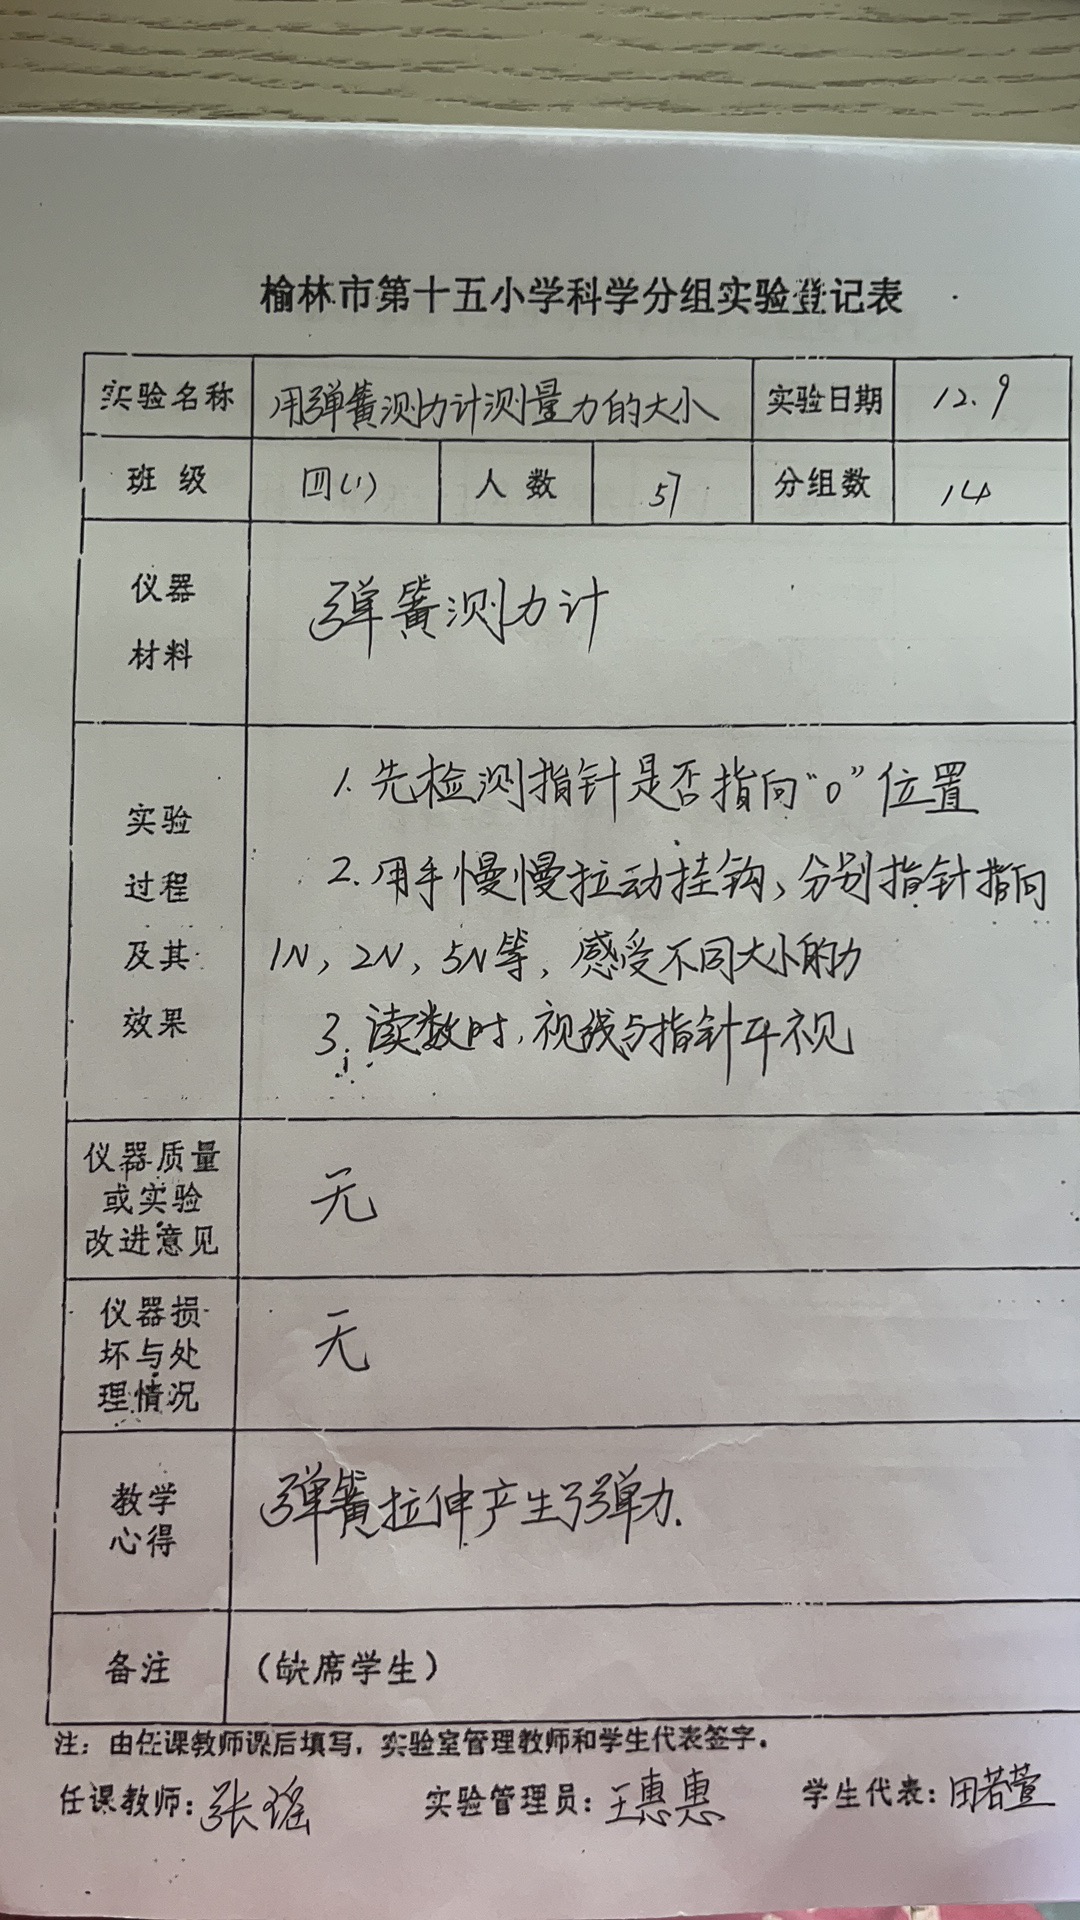 榆林市第十五小学科学分组实验登记表
实验名称 用弹簧测力计测量力的大小 实验日期 12.9
班 级 四(1) 人 数 57 分组数 14
仪器
材料
弹簧测力计
实验
过程
及其
效果
1. 先检测指针是否指向“0”位置
2. 用手慢慢拉动挂钩,分别指针指向
1N, 2N, 5N等, 感受不同大小的力
3. 读数时,视线与指针平视
仪器质量
或实验
改进意见
无
仪器损
坏与处
理情况
无
教学
心得
弹簧拉伸产生了弹力.
备注 (缺席学生)
注:由任课教师课后填写,实验室管理教师和学生代表签字。
任课教师:张瑶 实验管理员:王惠惠 学生代表:田若萱